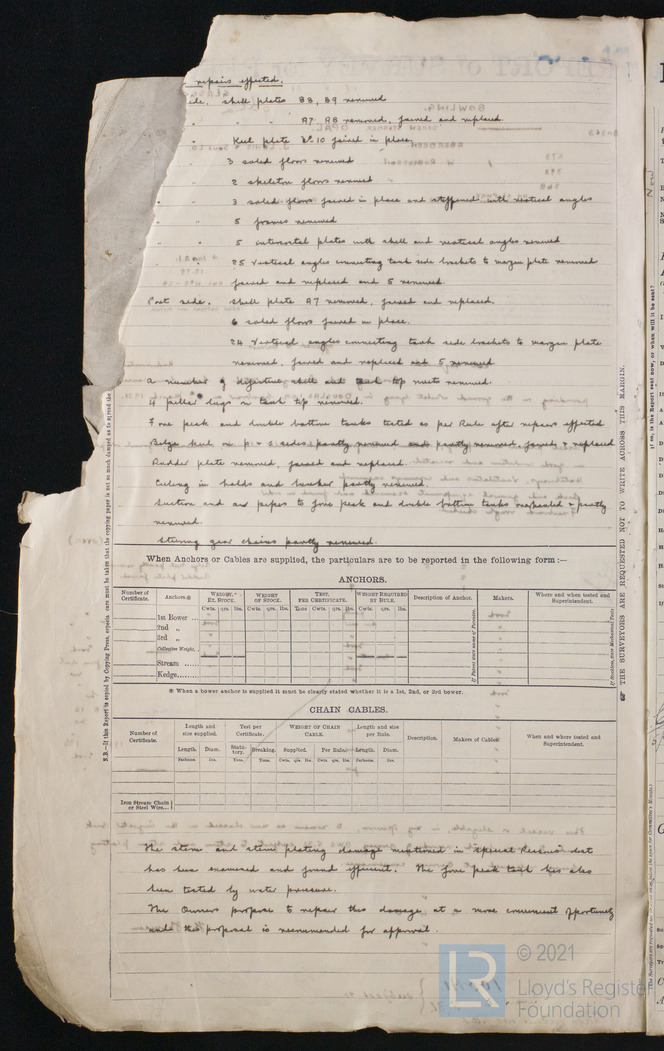 repairs effected.
ide. Shell plates B8, B9 renewed
" " A7 A8 removed, faired and replaced.
" Keel plate No 10 faired in place.
" 3 solid floors renewed
" 2 skeleton floors renewed
" " 3 solid floors faired in place and stiffened with vertical angles
" " 5 frames renewed
" " 5 intercostal plates with shell and vertical angles renewed
" " 25 vertical angles connecting tank side brackets to margin plate removed
faired and replaced and 5 renewed.
Port side. Shell plate A7 removed, faired and replaced.
6 solid floors faired in place.
24 vertical angles connecting tank side brackets to margin plate
removed, faired and replaced and 5 renewed
A number of defective shell and tank top rivets renewed.
4 pillar lugs on tank top renewed.
Fore peak and double bottom tanks tested as per Rule after repairs effected
Bilge keel on p. & s. sides partly renewed and partly removed, faired & replaced
Rudder plate removed, faired and replaced.
Ceiling in holds and bunker partly renewed.
Suction and air pipes to fore peak and double bottom tanks overhauled & partly
renewed.
Steering gear chains partly renewed.
When Anchors or Cables are supplied, the particulars are to be reported in the following form :—
ANCHORS.
Number of Certificate. Anchors.* WEIGHT.* EX. STOCK. WEIGHT OF STOCK. TEST, PER CERTIFICATE. WEIGHT REQUIRED BY RULE. Description of Anchor. Makers. Where and when tested and Superintendent.
Cwts. qrs. lbs. Cwts. qrs. lbs. Tons Cwts. qrs. lbs. Cwts. qrs. lbs.
1st Bower ...
2nd "
3rd "
Collective Weight.
Stream ...
Kedge...
* When a bower anchor is supplied it must be clearly stated whether it is a 1st, 2nd, or 3rd bower.
CHAIN CABLES.
Number of Certificate. Length and size supplied. Test per Certificate. WEIGHT OF CHAIN CABLE. Length and size per Rule. Description. Makers of Cables. When and where tested and Superintendent.
Length. Diam. Statutory. Breaking. Supplied. Per Rule. Length. Diam.
Fathoms Ins. Tons. Tons. Cwts. qrs. lbs. Cwts. qrs. lbs. Fathoms. Ins.
Iron Stream Chain or Steel Wire...
The stem and stem plating damage mentioned in Special Reasons list
has been examined and found efficient. The fore peak tank has also
been tested by water pressure.
The Owners propose to repair this damage at a more convenient opportunity
and this proposal is recommended for approval.
THE SURVEYORS ARE REQUESTED NOT TO WRITE ACROSS THIS MARGIN.
LR
© 2021
Lloyd's Register
Foundation